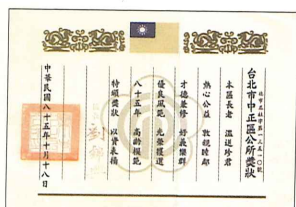 台北市中正區公所獎狀
本區長老 溫送珍君
熱心公益 敦親睦鄰
才德兼修 好義樂群
優良風範 光榮躍進
八十五年 高齡模範
特頒獎狀 以資表揚
中華民國八十五年十月十八日